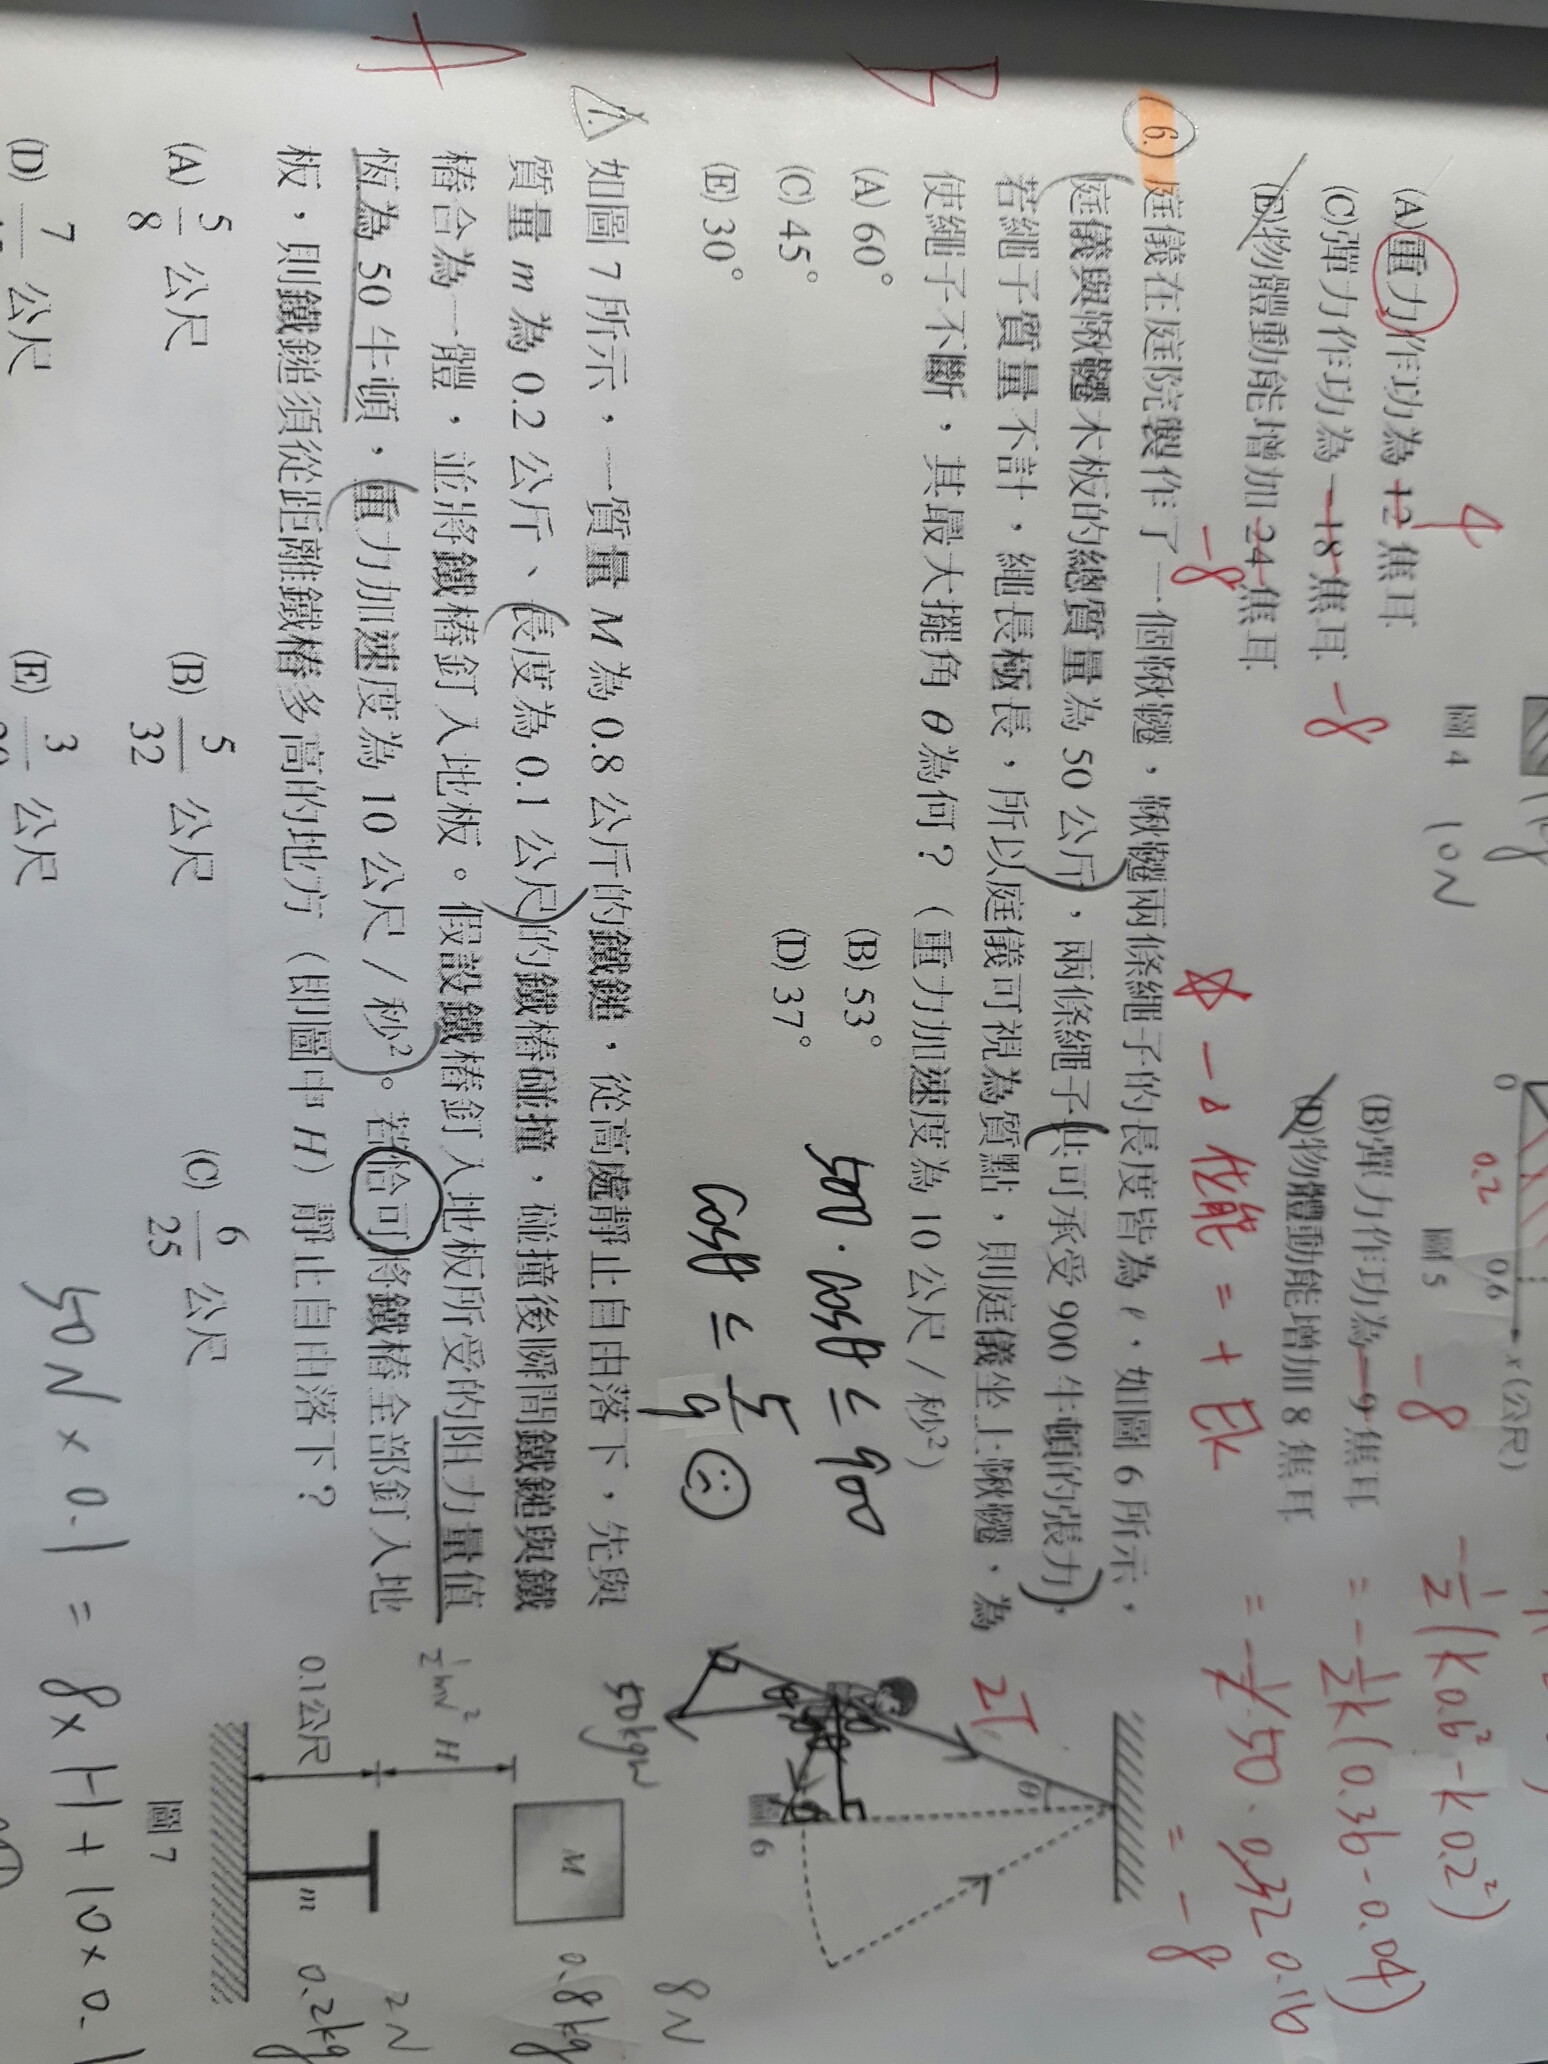 (A)重力作功為 12 焦耳
4
(B)彈力作功為 −9 焦耳
−8
(C)彈力作功為 −18 焦耳
−8
(D)物體動能增加 8 焦耳
(E)物體動能增加 24 焦耳
−8
圖 4
10N
0
0.2
0.6
x (公尺)
圖 5
= −8
6. 庭儀在庭院製作了一個鞦韆，鞦韆兩條繩子的長度皆為 ℓ，如圖 6 所示，
庭儀與鞦韆木板的總質量為 50 公斤，兩條繩子共可承受 900 牛頓的張力，
若繩子質量不計，繩長極長，所以庭儀可視為質點，則庭儀坐上鞦韆，為
使繩子不斷，其最大擺角 θ 為何？（重力加速度為 10 公尺／秒²）
(A) 60°
(B) 53°
(C) 45°
(D) 37°
(E) 30°
B
500 · cosθ ≤ 900
cosθ ≤ 5/9
2T
θ
50kgw
圖 6
7. 如圖 7 所示，一質量 M 為 0.8 公斤的鐵鎚，從高處靜止自由落下，先與
質量 m 為 0.2 公斤、長度為 0.1 公尺的鐵樁碰撞，碰撞後瞬間鐵鎚與鐵
樁合為一體，並將鐵樁釘入地板。假設鐵樁釘入地板所受的阻力量值
恆為 50 牛頓，重力加速度為 10 公尺／秒²。若恰可將鐵樁全部釘入地
板，則鐵鎚須從距離鐵樁多高的地方（即圖中 H）靜止自由落下？
A
(A) 5/8 公尺
(B) 5/32 公尺
(C) 6/25 公尺
(D) 7 公尺
(E) 3 公尺
8N
0.8kg
M
H
½mv²
0.1公尺
m
2N
0.2kg
圖 7
50N × 0.1 = 8 × H + 10 × 0.1